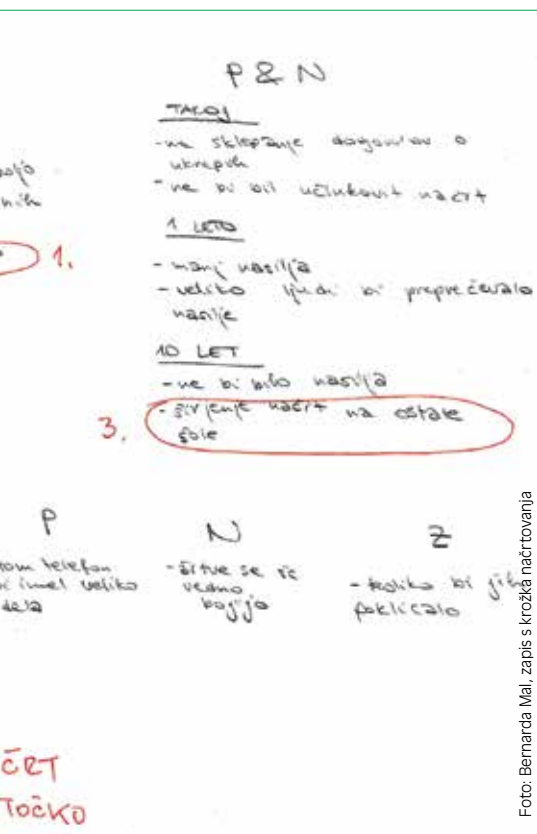 P & N
TAKOJ
- ne sklepanje dogovorov o
ukrepih
- ne bi bil učinkovit načrt
1 LETO
1.
- manj nasilja
- veliko ljudi bi preprečevalo
nasilje
10 LET
- ne bi bilo nasilja
3.
- širjenje načrt na ostale
šole
P
tom telefon
bi imel veliko
dela
N
- žrtve se še
vedno
bojijo
Z
- koliko bi jih
poklicalo
ČRT
TOČKO
Foto: Bernarda Mal, zapis s krožka načrtovanja